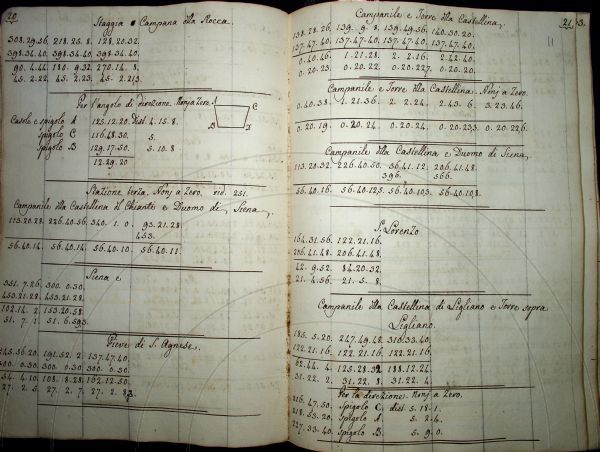 20.
Staggia e Campana alla Rocca.
308.29.56. 218.25.8. 128.20.32.
398.34.40. 398.34.40. 398.34.40.
90.4.44 180.9.32 270.14.8.
45.2.22. 45.2.23. 45.2.21 3.
Per l'angolo di direzione. Nonj a Zero.
C
Casole e spigolo A 125.12.20. dist. 4.15.8.
Spigolo C 116.48.30. 5.
Spigolo B 129.17.50. 5.10.8.
12.29.20
Stazione terza. Nonj a Zero. rid. 251.
Campanile della Castellina il Chianti e Duomo di Siena,
113.20.28. 226.40.56. 340.1.0. 93.21.28.
453.
56.40.14. 56.40.14. 56.40.10. 56.40.11.
Siena e
351.7.26. 300.0.30.
453.21.28. 453.21.28.
102.14.2 153.20.58.
51.7.1 51.6.59 3.
Pieve di S. Agnese.
245.56.20. 191.52.2. 137.47.40.
300.0.30. 300.0.30. 300.0.30.
54.4.10. 108.8.28. 162.12.50.
27.2.5 27.2.7. 27.2.8 3.
21.
Campanile e Torre alla Castellina,
138.28.26. 139.9.8. 139.49.56. 140.30.20.
137.47.40. 137.47.40. 137.47.40. 137.47.40.
0.40.46. 1.21.28. 2.2.16. 2.42.40.
0.20.23. 0.20.22. 0.20.22 7. 0.20.20.
Campanile e Torre alla Castellina. Nonj a Zero.
0.40.38. 1.21.36. 2.2.24. 2.43.6. 3.23.46.
0.20.19. 0.20.24. 0.20.24. 0.20.23 3. 0.20.22 6.
Campanile alla Castellina e Duomo di Siena,
113.20.32. 226.40.50. 36.41.12. 206.41.48.
396. 566.
56.40.16. 56.40.12,5. 56.40.10 3. 56.40.10,8.
S. Lorenzo
164.31.56. 122.21.16.
206.41.48. 206.41.48.
42.9.52. 84.20.32.
21.4.56. 21.5.8.
Campanile alla Castellina di Ligliano e Torre sopra
Ligliano.
185.5.20. 247.49.48. 310.33.40.
122.21.16. 122.21.16. 122.21.16.
62.44.4 125.28.32 188.12.24.
31.22.2 31.22.8 31.22.4
Per la direzione. Nonj a Zero.
216.47.50. Spigolo C, dist. 5.18.1.
218.53.20. Spigolo A. 5.2.4.
227.33.40. Spigolo B. 5.9.0.